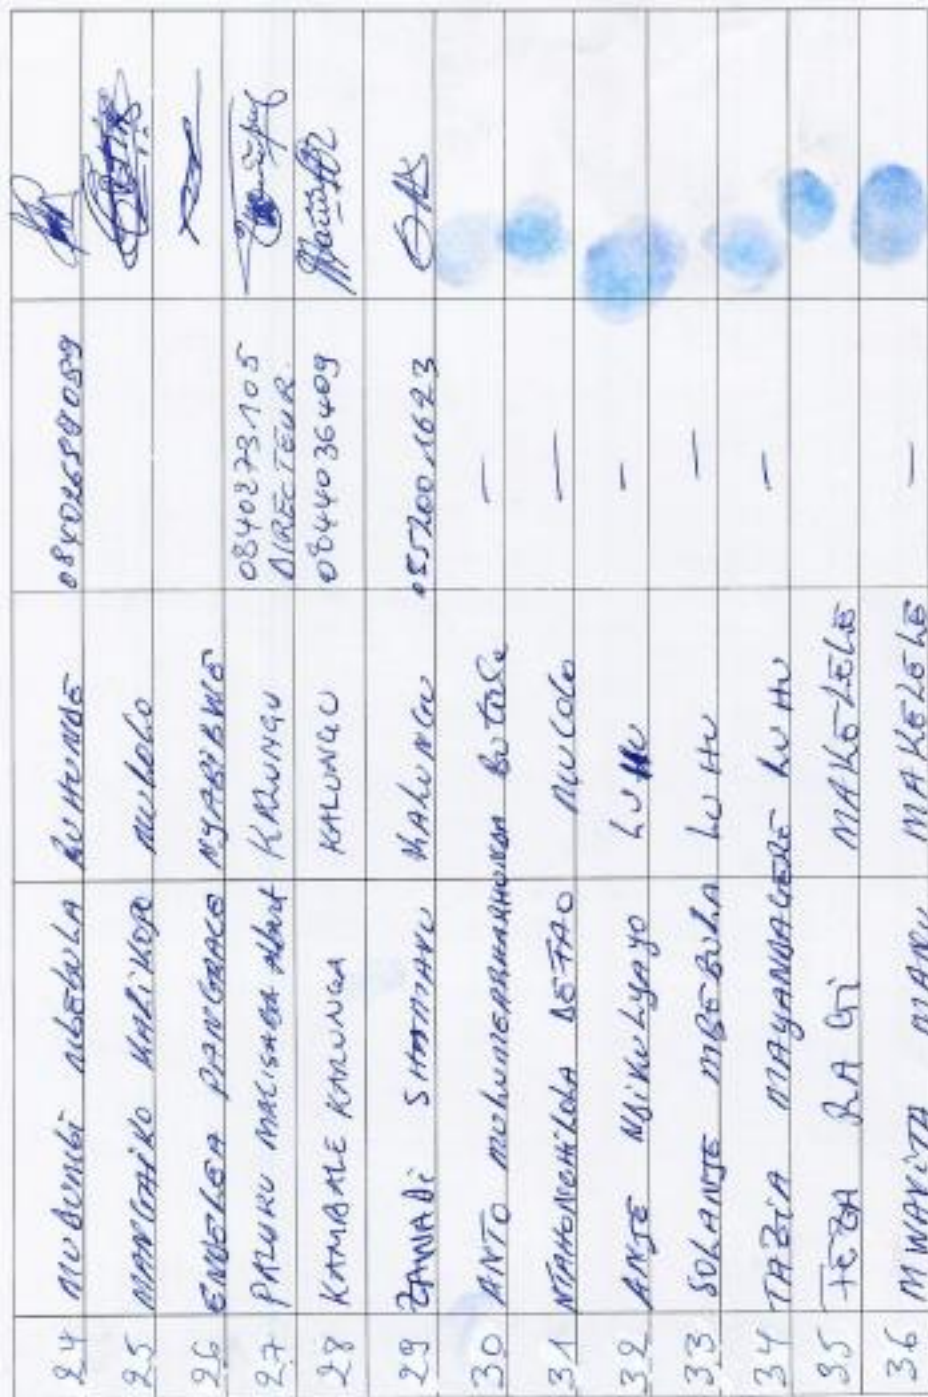 24 MUBUNGI NGEBULA BUHUNDE 0840268 7059
25 MANGAIKO KALIKOPO MUKOLO
26 ENDELEA PANGORACE NYABIBWE
27 PALUKU MALISABA Albert KALUNGU 0840273105
DIRECTEUR
28 KAMBALE KALUNGA KALUNGU 0844036409
29 ZAWADI SHAMAVU KALUNGU 0857001623
30 ANTO BUTALE —
31 NTAHONGHILOLA DEFAO MUCOLO —
32 ANJE NDIKULIYAYO LUHU -
33 SOLANJE MBEBULA LUHU —
34 TAZIA MAYANDAGERE LUHU —
35 FEZA RAGI MAKELELE
36 MWAVITA MANU MAKELELE —